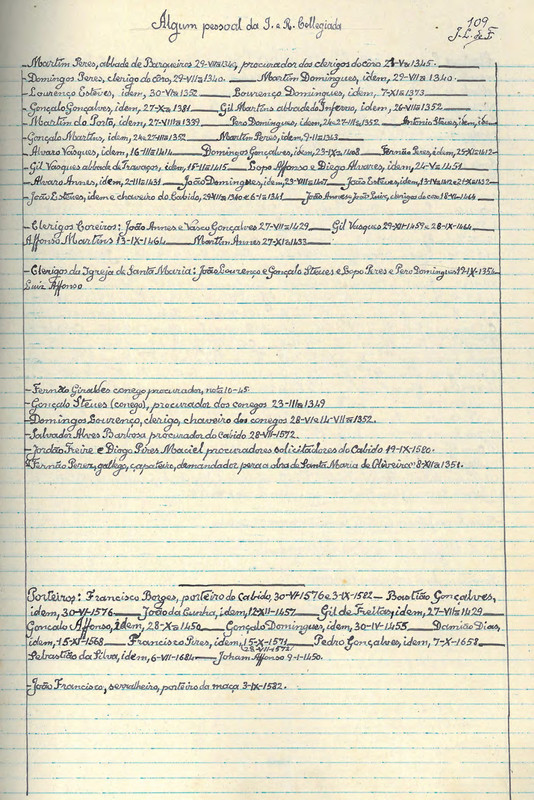 Algum pessoal da I. e R. Collegiada
109
J. L. de F.
- Martim Peres, abbade de Barqueiros 29-VII-1340, procurador dos clerigos do côro 21-V-1345.
- Domingos Peres, clerigo do côro, 29-VII-1340. Martim Domingues, idem, 29-VII-1340.
- Lourenço Esteves, idem, 30-V-1352 Lourenço Domingues, idem, 7-XI-1373
- Gonçalo Gonçalves, idem, 27-X-1381 Gil Martins abbade do Inferno, idem, 26-VII-1352.
- Martim do Porto, idem, 27-VIII-1339 Pero Domingues, idem, 24 e 27-III-1352 Antonio Steves, idem,
- Gonçalo Martins, idem, 24 e 27-III-1352 Martim Peres, idem, 9-II-1343
- Alvaro Vasques, idem, 16-III-1414 Domingos Gonçalves, idem, 23-IX-1408 Fernão Peres, idem, 25-XI-1412
- Gil Vasques abbade de Travaços, idem, 15-II-1415 Lopo Affonso e Diego Alvares, idem, 24-V-1451
- Alvaro Annes, idem, 2-III-1431 João Domingues, idem, João Esteves, idem,
- João Esteves, idem e chaveiro do Cabido, João Annes e João Luiz, clerigos do coro 18-V-1464
- Clerigos Coreiros: João Annes e Vasco Gonçalves 27-VII-1429 Gil Vasques 29-XII-1459 e 28-IX-1464
Affonso Martins 13-IX-1464 Martim Annes 27-XI-1433
- Clerigos da Igreja de Santa Maria: João Lourenço e Gonçalo Steves e Lopo Peres e Pero Domingues 19-IX-1354
Luiz Affonso
- Fernão Giraldes conego procurador, nota 10-45
- Gonçalo Steves (conego), procurador dos conegos 23-III-1349
- Domingos Lourenço, clerigo, chaveiro dos conegos 28-VI e 14-VII-1352.
- Salvador Alves Barbosa procurador do Cabido 28-VII-1572.
- Jordão Freire e Diogo Pires Maciel procuradores solicitadores do Cabido 19-IX-1580.
- Fernão Perez, gallego, çapateiro, demandador pera a obra de Santa Maria de Oliveira 8-XII-1351.
Porteiros: Francisco Borges, porteiro do Cabido, 30-VI-1576 e 3-IX-1582 - Bastião Gonçalves,
idem, 30-VI-1576 João da Cunha, idem, 12-XII-1457 Gil de Freitas, idem, 27-VII-1429
Gonçalo Affonso, idem, 28-X-1450 Gonçalo Domingues, idem, 30-IV-1455 Damião Dias,
idem, 15-XI-1568 Francisco Pires, idem, 15-X-1571 Pedro Gonçalves, idem, 7-X-1658
28-VII-1572
Sebastião da Silva, idem, 6-VII-1684 Joham Affonso 9-1-1450.
- João Francisco, serralheiro, porteiro da maça 3-IX-1582.